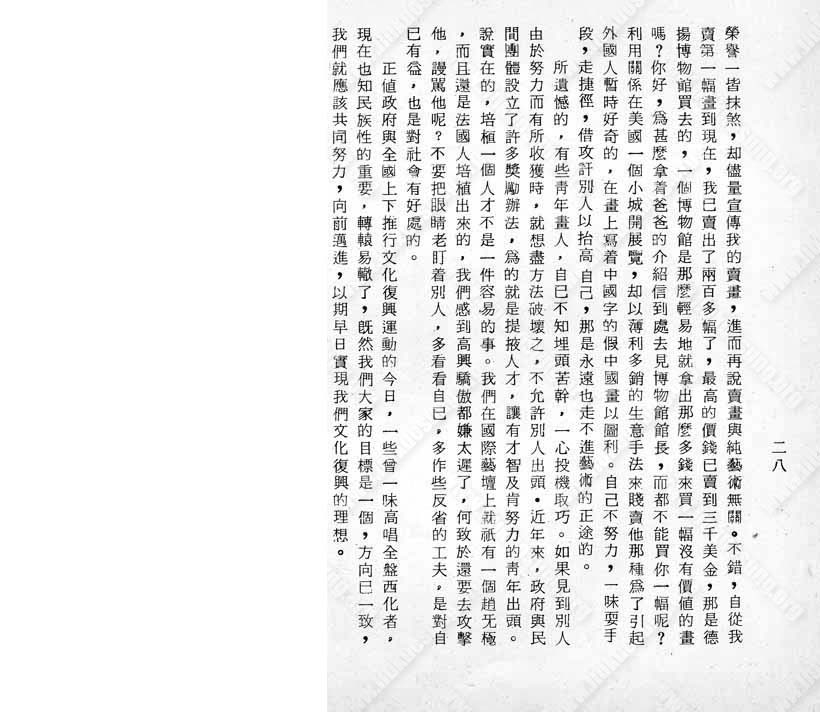 二八
榮譽一皆抹煞，却儘量宣傳我的賣畫，進而再說賣畫與純藝術無關。不錯，自從我
賣第一幅畫到現在，我已賣出了兩百多幅了，最高的價錢已賣到三千美金，那是德
揚博物館買去的，一個博物館是那麼輕易地就拿出那麼多錢來買一幅沒有價値的畫
嗎？你好，爲甚麼拿着爸爸的介紹信到處去見博物館館長，而都不能買你一幅呢？
利用關係在美國一個小城開展覽，却以薄利多銷的生意手法來賤賣他那種爲了引起
外國人暫時好奇的，在畫上寫着中國字的假中國畫以圖利。自己不努力，一味耍手
段，走捷徑，借攻訐別人以抬高自己，那是永遠也走不進藝術的正途的。
所遺憾的，有些靑年畫人，自己不知埋頭苦幹，一心投機取巧。如果見到別人
由於努力而有所收獲時，就想盡方法破壞之，不允許別人出頭。近年來，政府與民
間團體設立了許多獎勵辦法，爲的就是提掖人才，讓有才智及肯努力的靑年出頭。
說實在的，培植一個人才不是一件容易的事。我們在國際藝壇上就祇有一個趙无極
，而且還是法國人培植出來的，我們感到高興驕傲都嫌太遲了，何致於還要去攻擊
他，謾罵他呢？不要把眼睛老盯着別人，多看看自己，多作些反省的工夫，是對自
已有益，也是對社會有好處的。
正値政府與全國上下推行文化復興運動的今日，一些曾一味高唱全盤西化者，
現在也知民族性的重要，轉轅易轍了，旣然我們大家的目標是一個，方向已一致，
我們就應該共同努力，向前邁進，以期早日實現我們文化復興的理想。